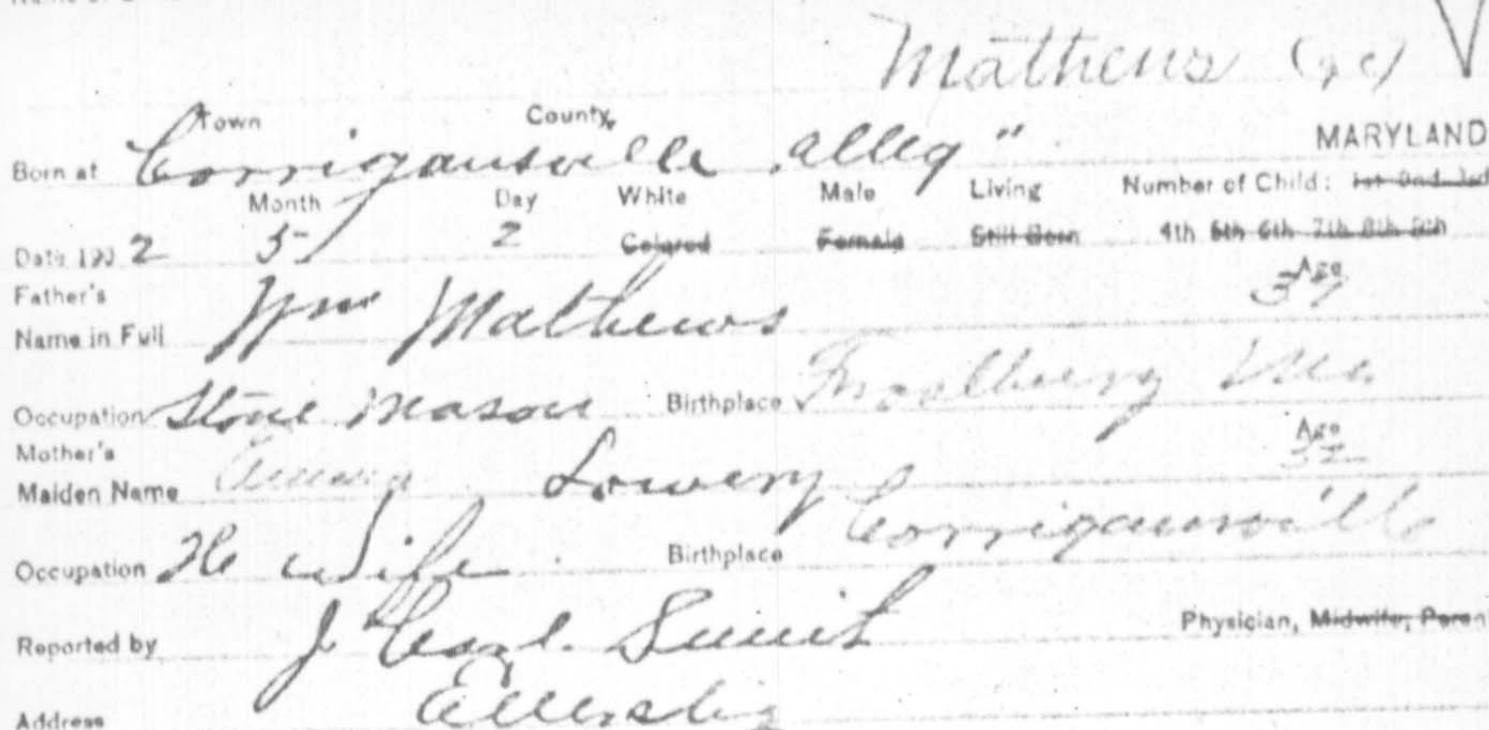 Mathews
Town County,
Born at Corrigansville Alleg" MARYLAND
Month Day White Male Living Number of Child: 1st 2nd 3rd
Date 190 2 5 2 Colored Female Still Born 4th 5th 6th 7th 8th 9th
Father's Age
Name in Full Wm Mathews 37
Occupation Stone Mason Birthplace Frostburg Md
Mother's Age
Maiden Name Emma Lowery 32
Occupation H Wife Birthplace Corrigansville
Reported by J Carl Smith Physician, Midwife, Parent
Address Ellerslie